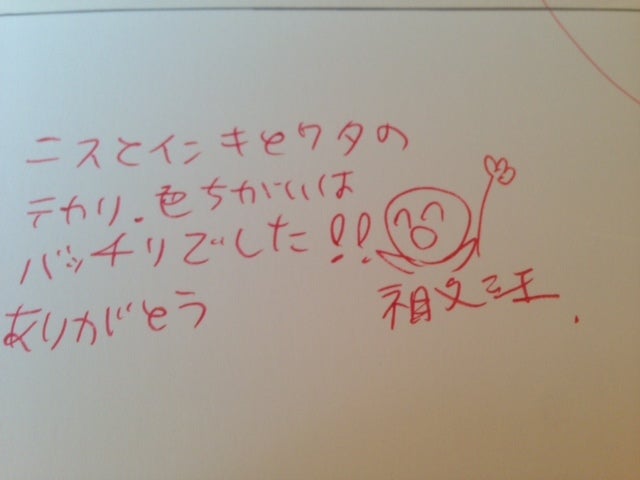 ニスとインキとワタの
テカリ.色ちがいは
バッチリでした!!
ありがとう
祖父江.